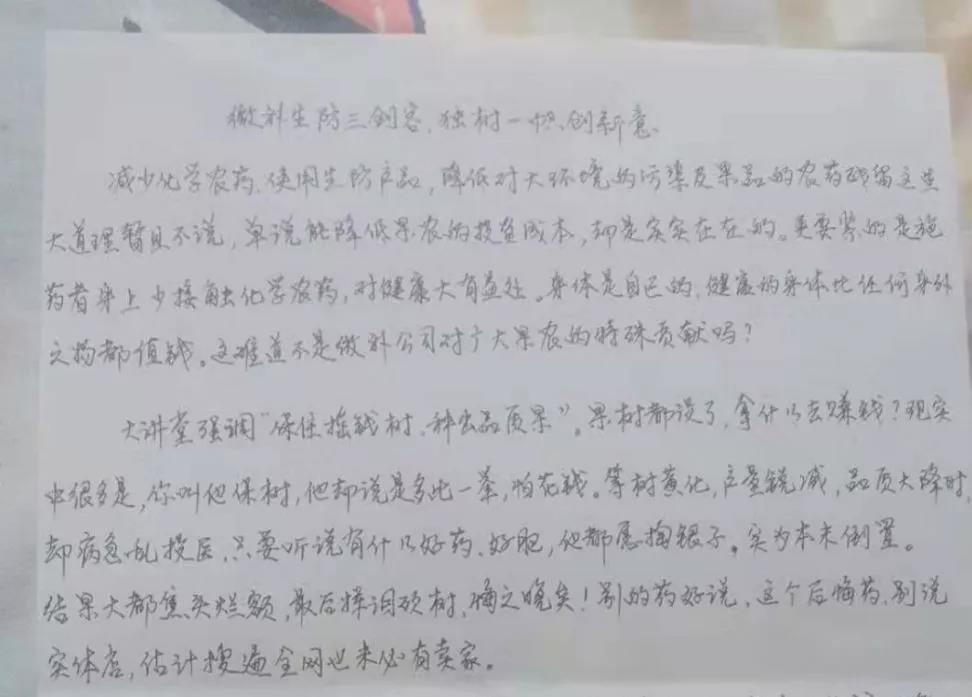 微补生防三剑客,独树一帜创新意。
减少化学农药,使用生防产品,降低对大环境的污染及果品的农药残留这些
大道理暂且不说,单说能降低果农的投资成本,却是实实在在的。更要紧的是施
药者身上少接触化学农药,对健康大有益处。身体是自己的,健康的身体比任何身外
之物都值钱。这难道不是微补公司对广大果农的特殊贡献吗?
大讲堂强调“保住摇钱树,种出品质果”。果树都没了,拿什么去赚钱?现实
中很多是,你叫他保树,他却说是多此一举,怕花钱。等树黄化,产量锐减,品质大降时,
却病急乱投医,只要听说有什么好药、好肥,他都愿掏银子。实为本末倒置。
结果大都焦头烂额,最后择泪砍树,悔之晚矣!别的药好说,这个后悔药,别说
实体店,估计搜遍全网也未必有卖家。